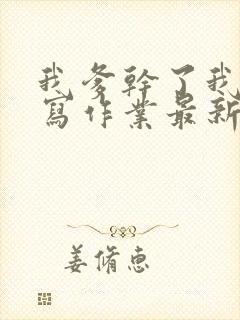 我爹幹了我
寫作業最新
姜脩惠